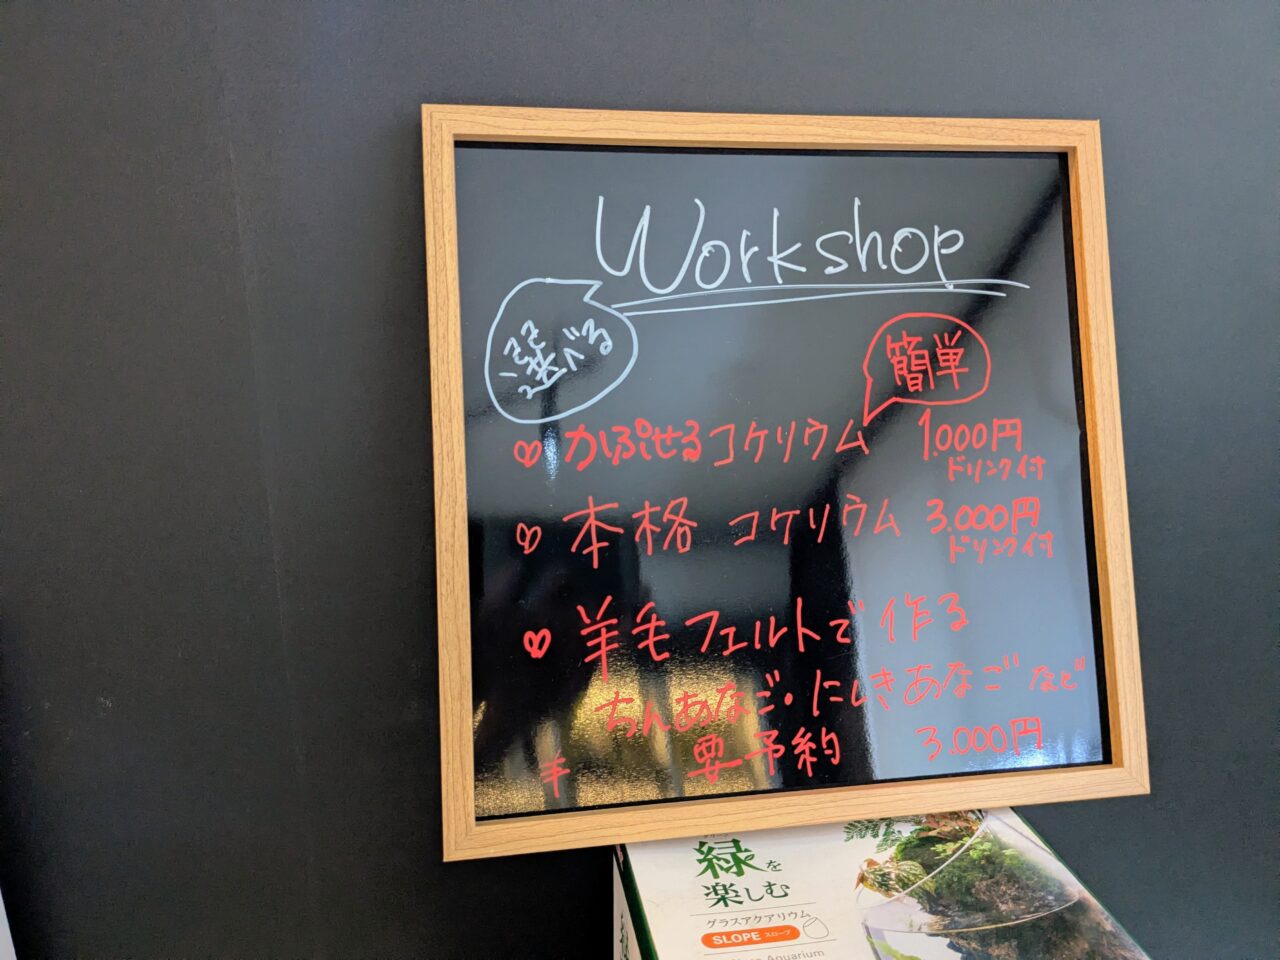 Workshop
選べる
簡単
かぷせるコケリウム 1.000円
ドリンク付
本格 コケリウム 3.000円
ドリンク付
羊毛フェルトで作る
ちんあなご・にしきあなごなど
要予約 3.000円
緑を
楽しむ
グラスアクアリウム
SLOPE スロープ
Aquarium